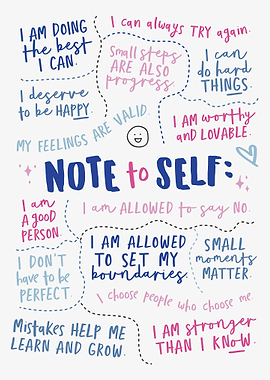 I AM DOING
the best
I CAN.
I can always TRY again.
Small steps
ARE ALSO
progress.
I can
do hard
THINGS.
I deserve
to be HAPPY.
MY FEELINGS ARE VALID.
I AM worthy
and LOVABLE.
NOTE to SELF:
I am
A GOOD
PERSON.
I am ALLOWED to say NO.
I DON'T
have to be
PERFECT.
I AM ALLOWED
TO SET MY
boundaries.
SMALL
moments
MATTER.
I choose people who choose me.
Mistakes HELP ME
LEARN AND GROW.
I AM stronger
THAN I KNOW.